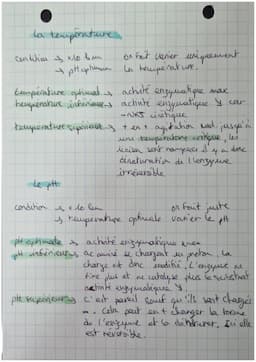 La température
condition → x10 Lum on fait varier uniquement
→ pH optimum la température.
température optimal → activité enzymatique max
température inférieure → activité enzymatique ↘ car
température supérieure → + en + agitation mol, jusqu'à
une température critique, les
liaison sont rompues il y a donc
dénaturation de l'enzyme
irréversible
Le pH
condition → x10 Lum on fait juste
→ température optimale varier le pH
pH optimale → activité enzymatique max
pH inférieur → ac aminé se chargent en proton. La
charge est donc modifié. L'enzyme ne
fixe plus et ne catalyse plus le substrat
activité enzymatique ↘
pH supérieur → C'est pareil sauf qu'ils sont chargés
-. Cela peut en + changer la forme
de l'enzyme et la dénaturer. Ici elle
est réversible.